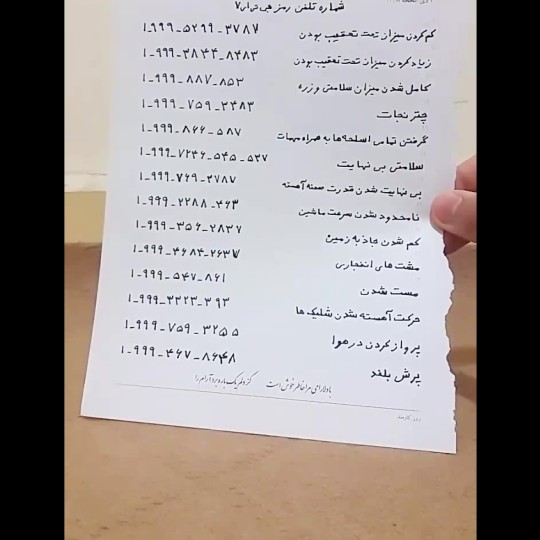 شماره تلفن رمز جی تی ای ۷
کم کردن میزان تحت تعقیب بودن ۱-۹۹۹-۵۲۹۹-۳۷۸۷
زیاد کردن میزان تحت تعقیب بودن ۱-۹۹۹-۳۸۴۴-۸۴۸۳
کامل شدن میزان سلامتی و زره ۱-۹۹۹-۸۸۷-۸۵۳
چتر نجات ۱-۹۹۹-۷۵۹-۳۴۸۳
گرفتن تمامی اسلحه ها به همراه مهمات ۱-۹۹۹-۸۶۶-۵۸۷
سلامتی بی نهایت ۱-۹۹۹-۷۲۴۶-۵۴۵-۵۳۷
بی نهایت شدن قدرت صحنه آهسته ۱-۹۹۹-۷۶۹-۳۷۸۷
نامحدود شدن سرعت ماشین ۱-۹۹۹-۲۲۸۸-۴۶۳
کم شدن جاذبه زمین ۱-۹۹۹-۳۵۶-۲۸۳۷
مشت های انفجاری ۱-۹۹۹-۴۶۸۴-۲۶۳۷
مست شدن ۱-۹۹۹-۵۴۷-۸۶۱
حرکت آهسته شدن شلیک ها ۱-۹۹۹-۳۲۲۳-۳۹۳
پرواز کردن در هوا ۱-۹۹۹-۷۵۹-۳۲۵۵
پرش بلند ۱-۹۹۹-۴۶۷-۸۶۴۸
با دلارامی مرا خاطر خوش است کز دلم یک باره برد آرام را